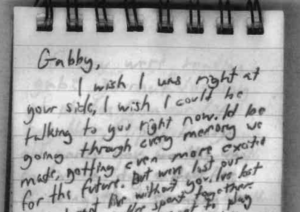 Gabby,
I wish I was right at
your side, I wish I could be
talking to you right now. Id be
going through every memory we
made, getting even more excited
for the future. But were lost our
without you. Ive lost
spent together
to play